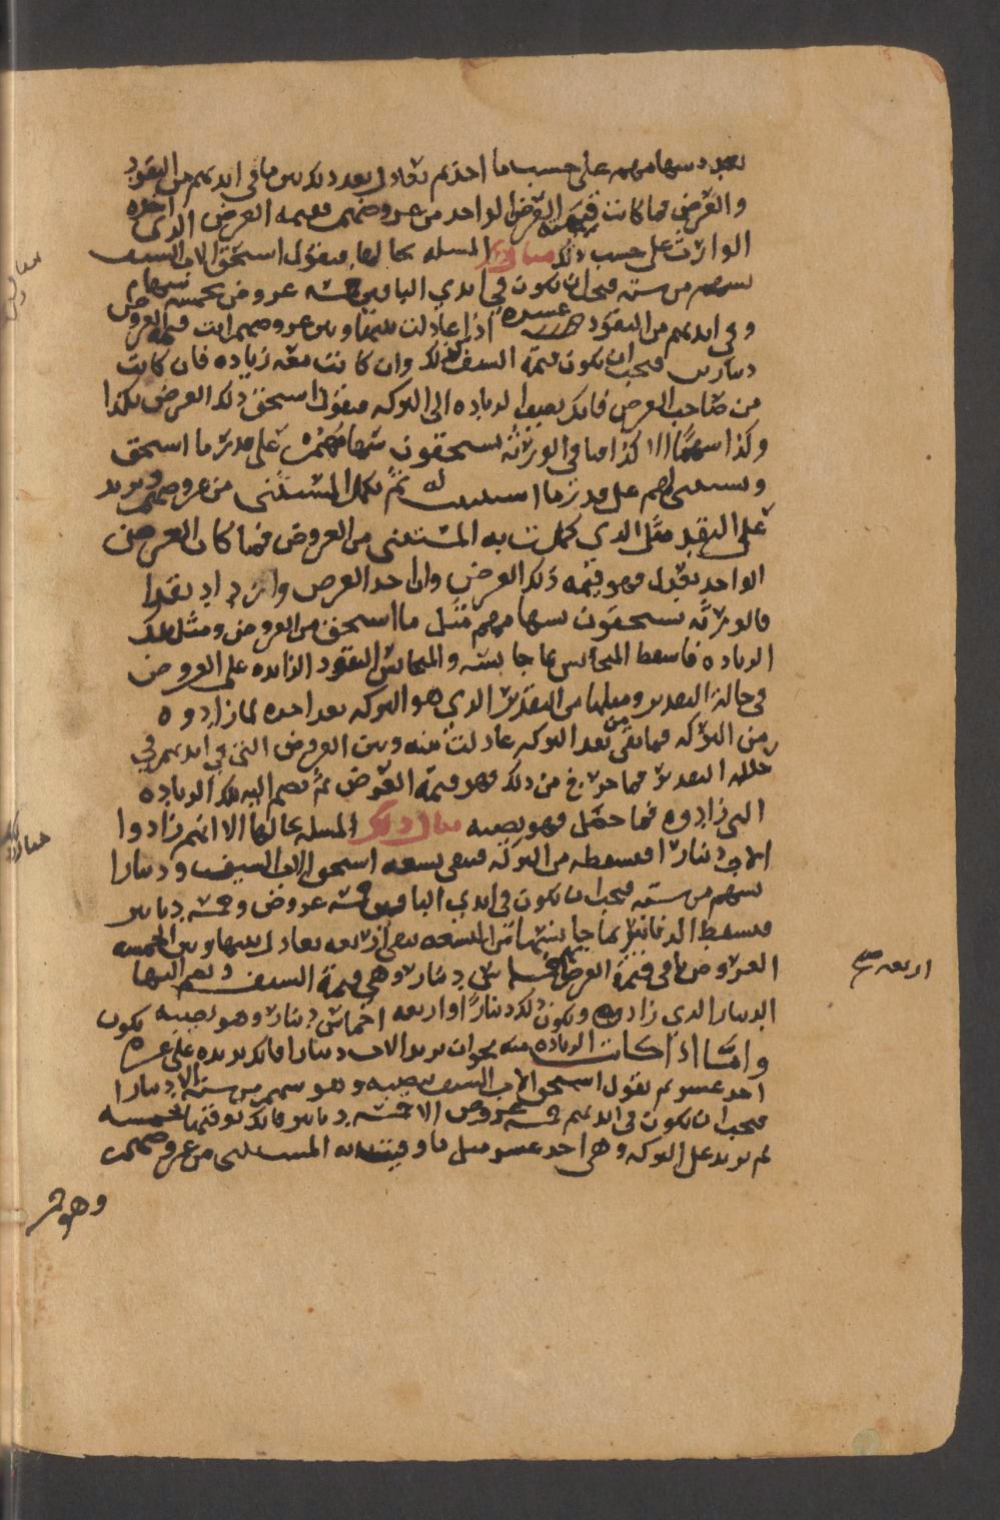 بعدد سهامهم على حسب ما اخذتم تعادل بعد ذلك بين ما في ايديهم من النقود
والعرض فما كانت قيمة العرض الواحد من عروضهم فهيمه العرض الذي اخذه
الوارث على حسب ذلك مثال ذلك المسله بحالها فنقول استحق الاب السيف
بسهم من سته فيجب ان يكون في ايدي الباقين خمسه عروض بخمسه سهام
وفي ايديهم من النقود عشره اذا عادلت بينها وبين عروضهم كانت قيمة العرض
دينارين فيجب ان يكون قيمة السيف كذلك وان كانت معه زياده فان كانت
من صاحب العرض فانك تضيف الزياده الى التركه فنقول استحق ذلك العرض بكذا
وكذا سهما الا كذا وباقي الورثه يستحقون بسهامهم على قدر ما استحق
ويستثنى لهم على قدر ما استثنيت له ثم تكمل المستثنى من عروضهم وتزيد
على النقد مثل الذي كملت به المستثنى من العروض فما كان العرض
الواحد يعدل فهو قيمه ذلك العرض وان اخذ العرض وازداد نقدا
فالورثه يستحقون بسهامهم مثل ما استحق من العروض ومثل تلك
الزياده فاسقط المجانس بما جانسه والمجانس النقود الزايده على العروض
في حالة التقدير ومثلها من النقد الذي هو التركه بعد اخذه لما زادوه
من التركه فما بقي من بعد التركه عادلت بينه وبين العروض التي في ايديهم في
حالة التقدير فما خرج من ذلك فهو قيمة العرض ثم تضم اليه تلك الزياده
التي زادوه فما حصل فهو نصيبه مثال ذلك المسله بحالها الا انهم زادوا
الاب دينارا فتسقطه من التركه فيبقى تسعه استحق الاب السيف ودينارا
بسهم من سته فيجب ان يكون في ايدي الباقين خمسه عروض وخمسه دنانير
فتسقط الدنانير بما جانسها من التسعه يبقى اربعه تعادل بينها وبين الخمسه
العروض تلاقي قيمة العرض اخماس دينار وهي قيمة السيف وتضم اليها
الدينار الذي زادوه ويكون ذلك دينارا واربعه اخماس دينار وهو نصيبه
واما اذا كانت الزياده منه نحو ان يزيد الاب دينارا فانك تزيده على عشره يكون
احد عشر ثم تقول استحق الاب السيف بنصيبه وهو سهم من سته الا دينارا
فيجب ان يكون في ايديهم خمسه عروض الا خمسه دنانير فانك توفيها بخمسه
ثم تزيد على التركه وهي احد عشر مثل ما وفيت به المستثنى من عروضهم
وهو
اربعه صح
مثال ذلك